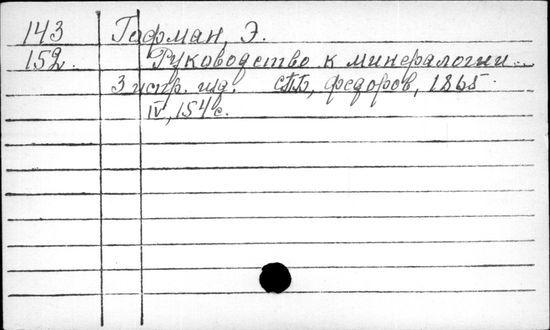 143 Гофман, Э.
152. Руководство к минералогии...
3 испр. изд. СПБ, Федоров, 1865.
IV, 154 с.